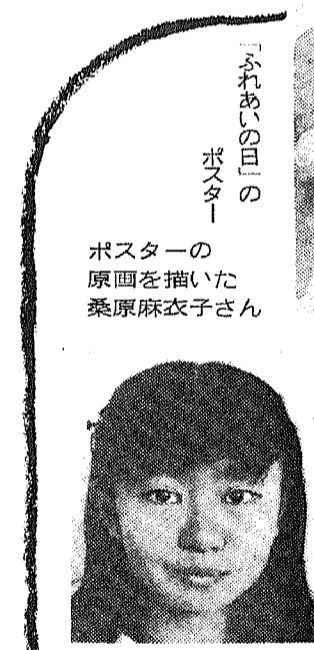 「ふれあいの日」の
ポスター
ポスターの
原画を描いた
桑原麻衣子さん